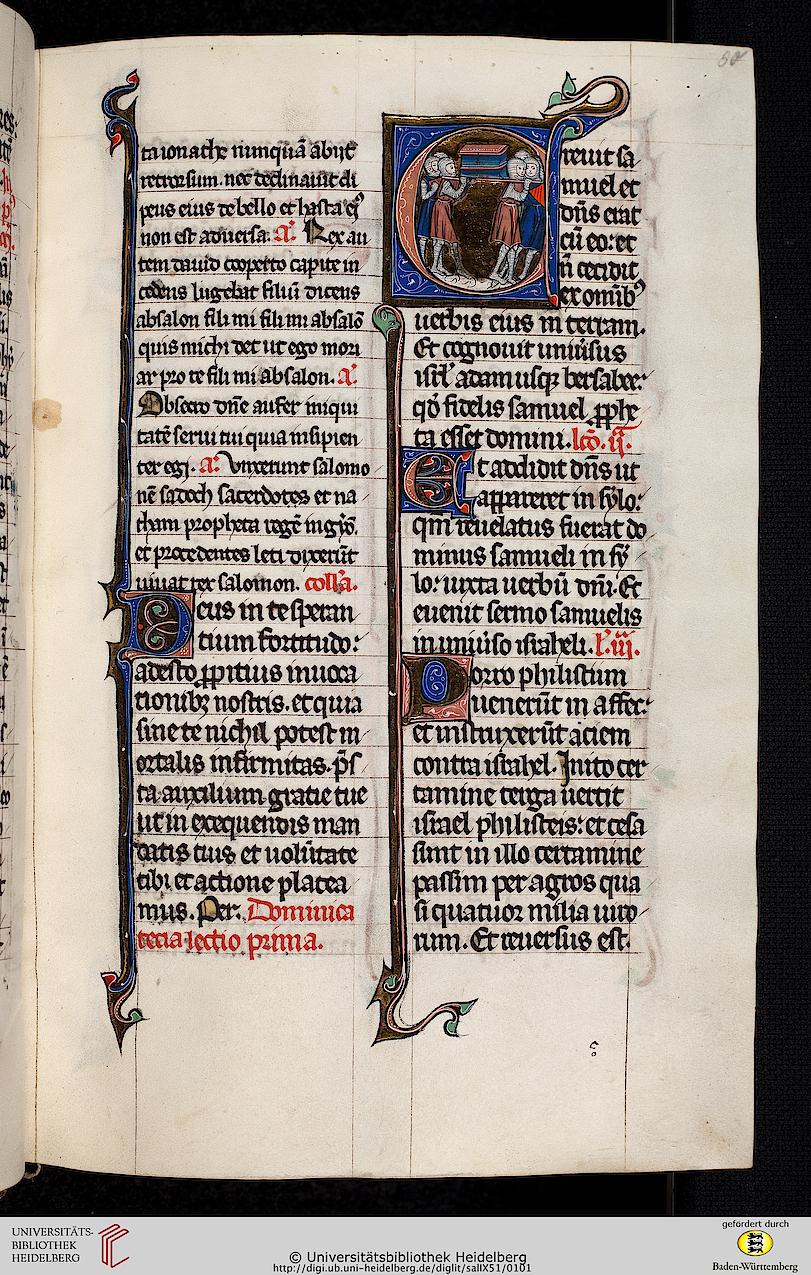 50
ta ionathe nunquā abiit
retrorsum. nec declinauit cli
peus eius de bello et hasta eiꝰ
non est aduersa. A. Rex au
tem dauid cooperto capite in
cedens lugebat filiū dicens
absalon fili mi fili mi absalō
quis michi det ut ego mori
ar pro te fili mi absalon. A.
Obsecro dn̄e aufer iniqui
tatē serui tui quia insipien
ter egi. A. Vnxerunt salomo
nē sadoch sacerdotes et na
tham propheta regē in gyō.
et procedentes leti dixerūt
uiuat rex salomon. coll'a.
Deus in te speran
tium fortitudo:
adesto ꝓpitius inuoca
tionibꝫ nostris. et quia
sine te nichil potest m
ortalis infirmitas. p̄s
ta auxilium gratie tue
ut in exequendis man
datis tuis et uolūtate
tibi et actione placea
mus. Per. Dominica
tercia lectio prima.
Creuit sa
muel et
dn̄s erat
cū eo: et
n̄ cecidit
ex omībꝰ
uerbis eius in terram.
Et cognouit uniūsus
isrl' a dan usqꝫ bersabee:
qd̄ fidelis samuel ꝓphe
ta esset domini. lcō. ij.
Et addidit dn̄s ut
appareret in sylo:
qm̄ reuelatus fuerat do
minus samueli in sy
lo: iuxta uerbū dn̄i. Et
euenit sermo samuelis
in uniūso israheli. l'. iij.
Porro philistiim
uenerūt in affec:
et instruxerūt aciem
contra israhel. Inito cer
tamine terga uertit
israel philisteis: et cesa
sunt in illo certamine
passim per agros qua
si quatuor milia uiro
rum. Et reuersus est.
UNIVERSITÄTS-
BIBLIOTHEK
HEIDELBERG
© Universitätsbibliothek Heidelberg
http://digi.ub.uni-heidelberg.de/diglit/salIX51/0101
gefördert durch
Baden-Württemberg